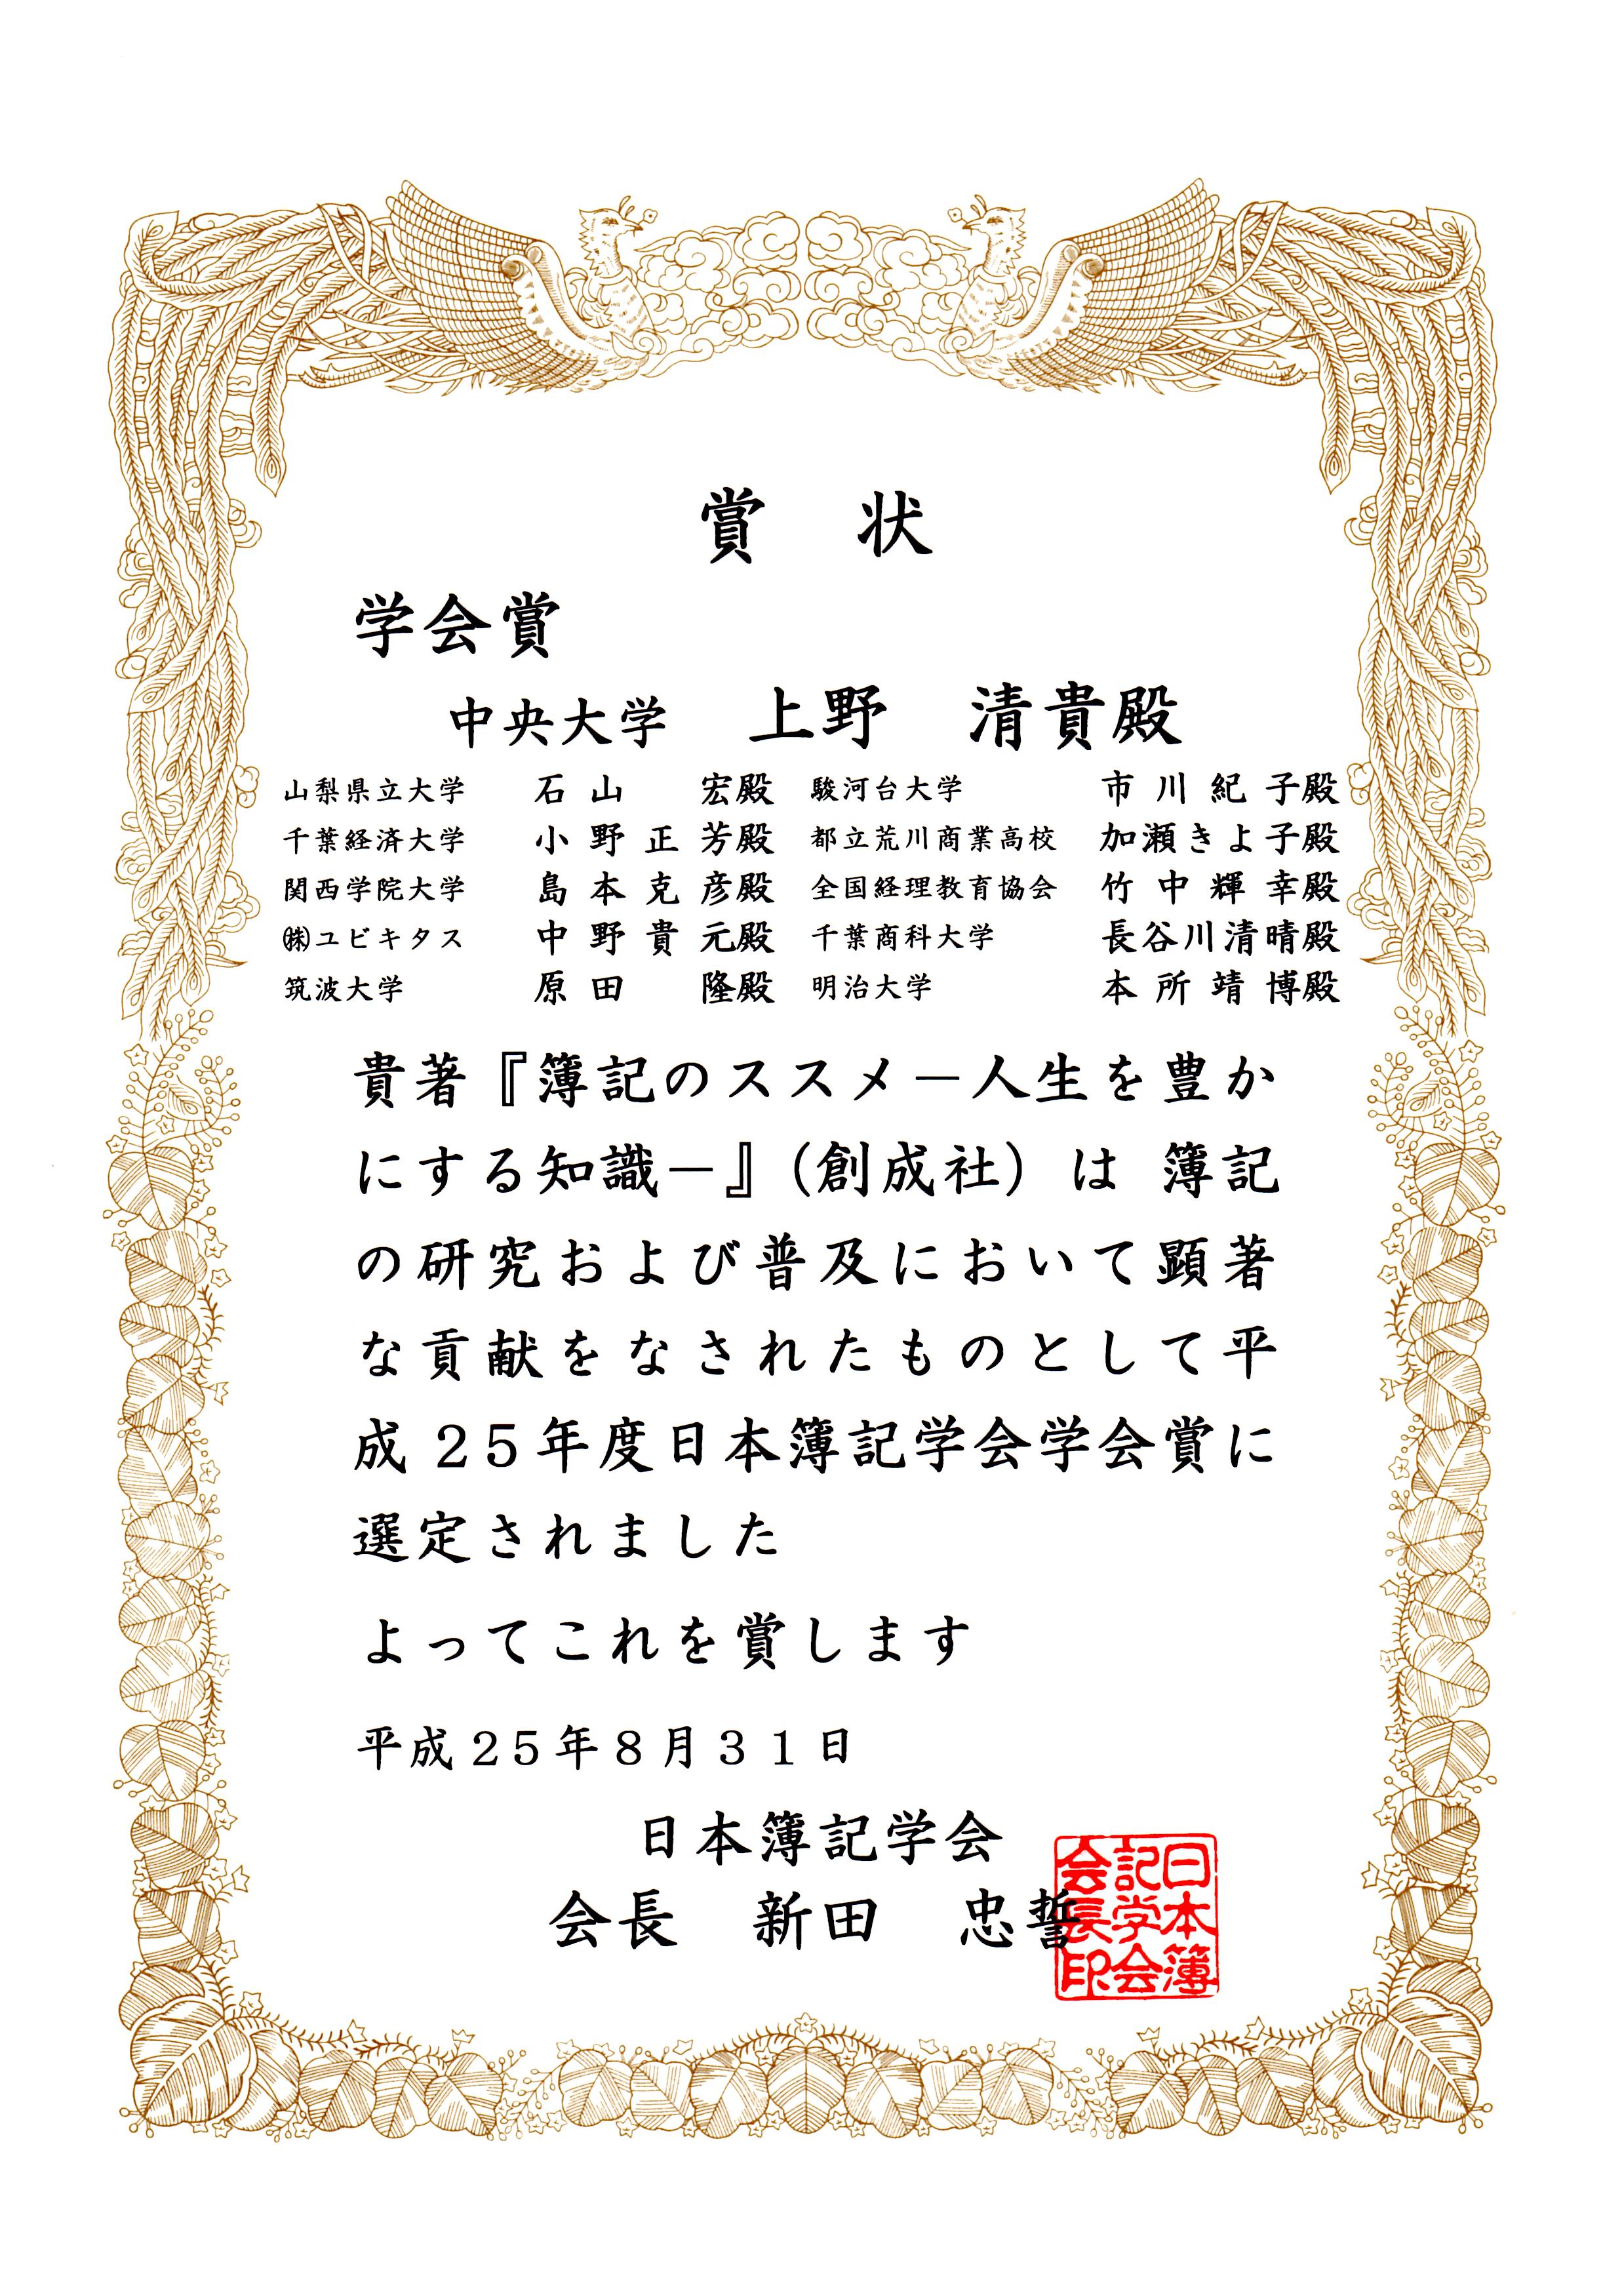 賞　状
学会賞
中央大学　上野　清貴殿
山梨県立大学　石山　宏殿　駿河台大学　市川紀子殿
千葉経済大学　小野正芳殿　都立荒川商業高校　加瀬きよ子殿
関西学院大学　島本克彦殿　全国経理教育協会　竹中輝幸殿
㈱ユビキタス　中野貴元殿　千葉商科大学　長谷川清晴殿
筑波大学　原田　隆殿　明治大学　本所靖博殿
貴著『簿記のススメ－人生を豊か
にする知識－』（創成社）は 簿記
の研究および普及において顕著
な貢献をなされたものとして平
成 25年度日本簿記学会学会賞に
選定されました
よってこれを賞します
平成25年8月31日
日本簿記学会
会長　新田　忠誓
日本簿
記学会
会長印